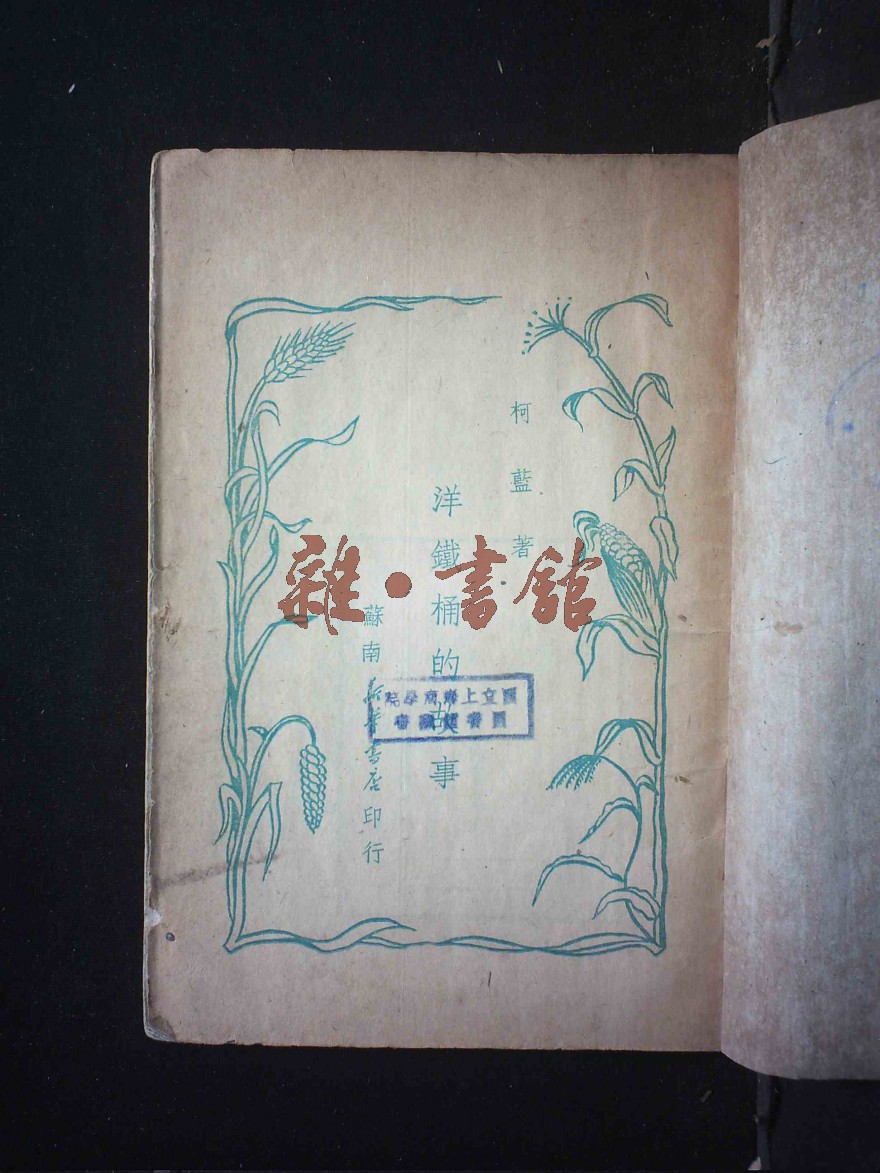 柯藍著
洋鐵桶的故事
蘇南新華書店印行
國立上海商學院
圖書館藏書
雜·書館